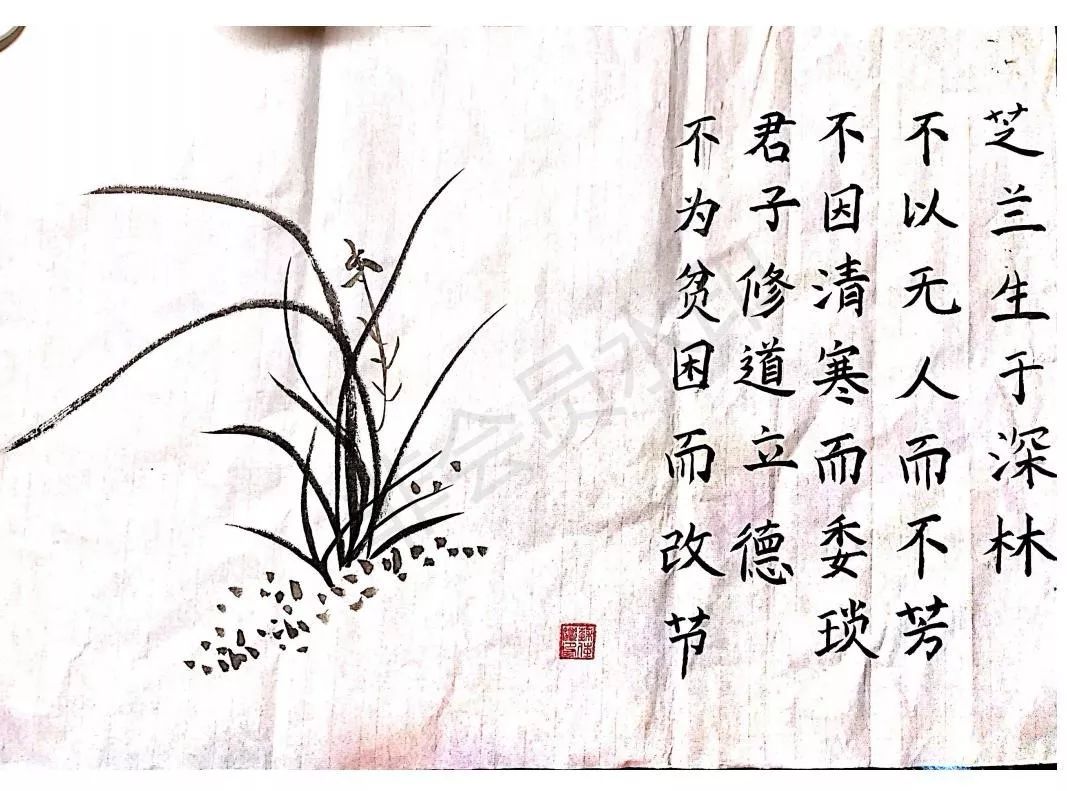 芝兰生于深林
不以无人而不芳
不因清寒而委琐
君子修道立德
不为贫困而改节